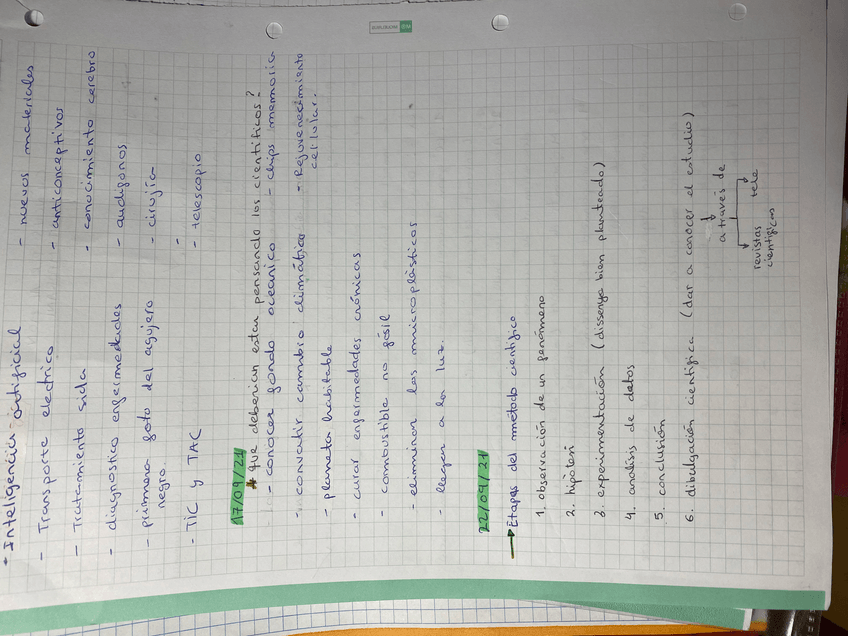 - Inteligencia artificial - nuevos materiales
- Transporte electrico - anticonceptivos
- Tratamiento sida - conocimiento cerebro
- diagnostico enfermedades - audifonos
- primera foto del agujero - cirujía
negro.
- TIC y TAC - telescopio
17/09/21
* que deberian estar pensando los científicos?
- conocer fondo oceanico - chips memoria
- convatir cambio climático - Rejuvenecimiento
celular.
- planeta habitable
- curar enfermedades crónicas
- combustible no fósil
- eliminar los microplásticos
- llegar a la luz.
22/09/21
→ Etapas del método cientifico
1. observación de un fenómeno
2. hipótesi
3. experimentación (dissenyo bien planteado)
4. análisis de datos
5. conclusión
6. dibulgación cientifica (dar a conocer el estudio)
a través de
revistas tele
cientificas